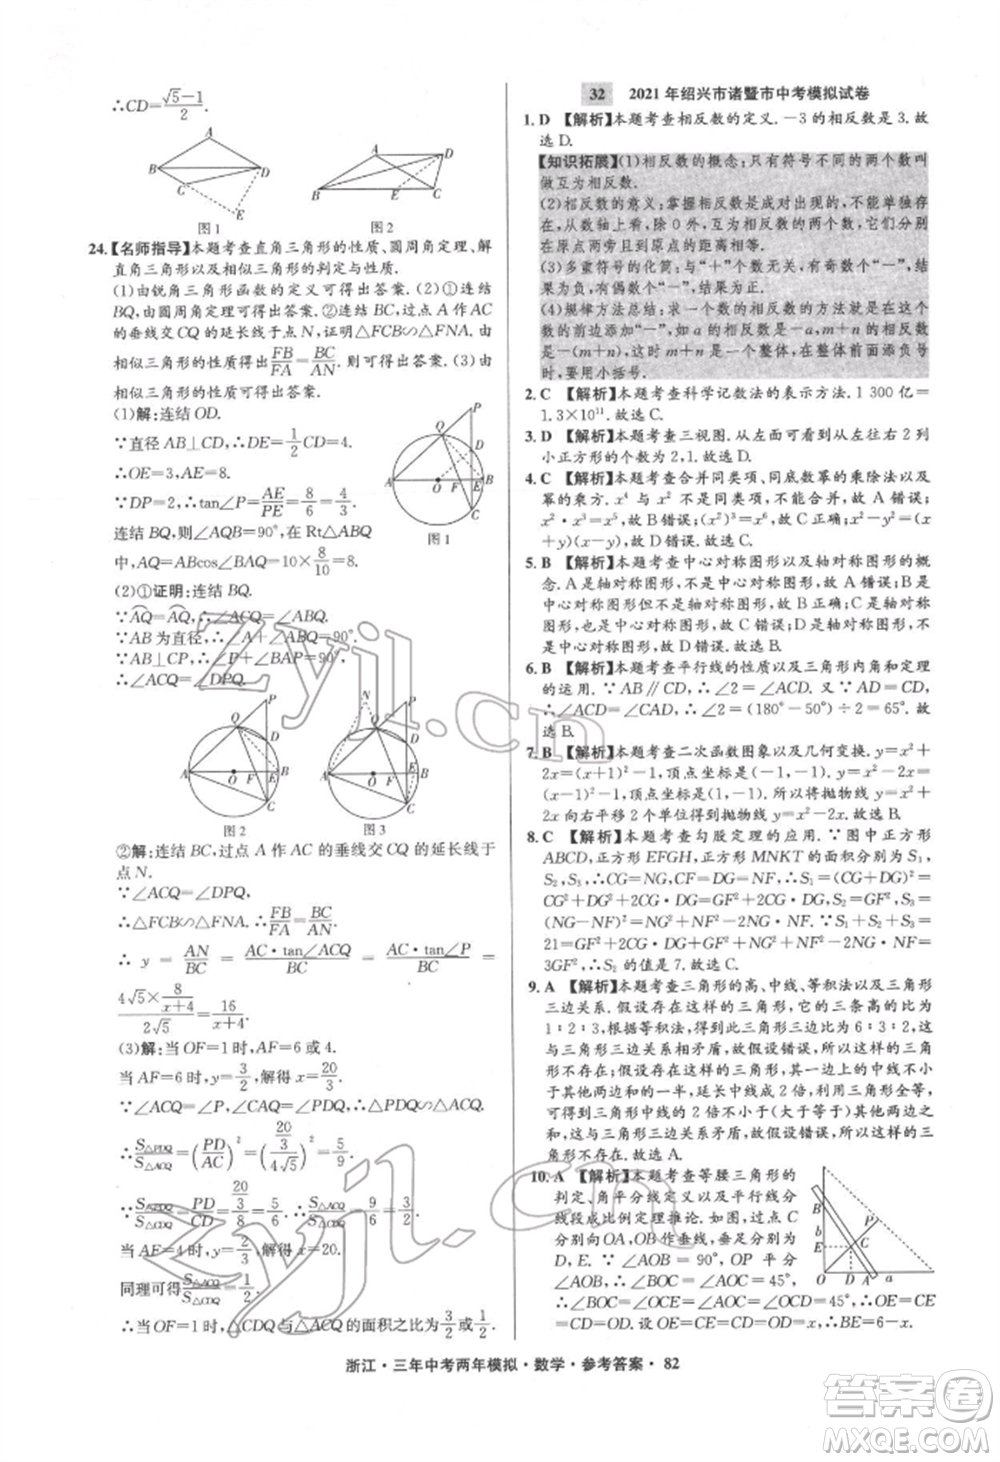 ∴CD=(√5-1)/2
A
B
D
C
E
图1
A
D
B
E
C
图2
24.【名师指导】本题考查直角三角形的性质、圆周角定理、解
直角三角形以及相似三角形的判定与性质.
(1)由锐角三角形函数的定义可得出答案.(2)①连结
BQ,由圆周角定理可得出答案.②连结BC,过点A作AC
的垂线交CQ的延长线于点N,证明△FCB∽△FNA.由
相似三角形的性质得出FB/FA=BC/AN.则可得出答案.(3)由
相似三角形的性质可得出答案.
(1)解:连结OD.
∵直径AB⊥CD,∴DE=1/2CD=4.
∴OE=3,AE=8.
∵DP=2,∴tan∠P=AE/PE=8/6=4/3.
连结BQ,则∠AQB=90°,在Rt△ABQ
中,AQ=ABcos∠ABQ=10×8/10=8.
P
Q
D
A
O
F
E
B
C
图1
(2)①证明:连结BQ.
∵AQ=AQ,∴∠ACQ=∠ABQ.
∵AB为直径,∴∠A+∠ABQ=90°.
∵AB⊥CP,∴∠P+∠BAQ=90°.
∴∠ABQ=∠P,∴∠ACQ=∠DPQ.
P
Q
D
A
O
F
E
B
C
图2
N
P
Q
D
A
O
F
E
B
C
图3
②解:连结BC,过点A作AC的垂线交CQ的延长线于
点N.
∵∠ACQ=∠DPQ.
∴△FCB∽△FNA.∴FB/FA=BC/AN.
∴y=AN/BC=AC·tan∠ACQ/BC=AC·tan∠P/BC=
(4√5×8/(x+4))/(2√5)=16/(x+4).
(3)解:当OF=1时,AF=6或4.
当AF=6时,y=3/2,可得x=20/3.
∵∠ACQ=∠P,∠CAQ=∠PDQ,∴△PDQ∽△ACQ.
∴S△PDQ/S△ACQ=(PD/AC)²=((20/3)/(4√5))²=5/9.
∵S△PDQ/S△CDQ=PD/CD=(20/3)/8=5/6,∴S△ACQ/S△CDQ=9/6=3/2.
当AE=4时,y=2/3,可得x=20.
同理可得S△ACQ/S△CDQ=1/2.
∴当OF=1时,△CDQ与△ACQ的面积之比为3/2或1/2.
32 2021年绍兴市诸暨市中考模拟试卷
1. D 【解析】本题考查相反数的定义.-3的相反数是3.故
选D.
【知识拓展】(1)相反数的概念:只有符号不同的两个数叫
做互为相反数.
(2)相反数的意义:掌握相反数是成对出现的,不能单独存
在,从数轴上看,除0外,互为相反数的两个数,它们分别
在原点两旁且到原点的距离相等.
(3)多重符号的化简:与“+”个数无关,有奇数个“-”,结
果为负,有偶数个“-”,结果为正.
(4)规律方法总结:求一个数的相反数的方法就是在这个
数的前边添加“-”,如a的相反数是-a,m+n的相反数是
-(m+n),这时m+n是一个整体,在整体前面添负号
时,要用小括号.
2. C 【解析】本题考查科学记数法的表示方法.1 300亿=
1.3×10¹¹.故选C.
3. D 【解析】本题考查三视图.从左面可看到从左往右2列
小正方形的个数为2,1.故选D.
4. C 【解析】本题考查合并同类项、同底数幂的乘除法以及
幂的乘方.x⁴与x²不是同类项,不能合并,故A错误;
x²·x³=x⁵,故B错误;(x²)³=x⁶,故C正确;x²÷x=
x(x≠0),故D错误.故选C.
5. B 【解析】本题考查中心对称图形以及轴对称图形的概
念.A是轴对称图形,不是中心对称图形,故A错误;B是
中心对称图形,也是轴对称图形,故B正确;C是中心对称
图形,不是轴对称图形,故C错误;D是轴对称图形,
不是中心对称图形,故D错误.故选B.
6. B 【解析】本题考查平行线的性质以及三角形内角和定理
的运用.∵AB∥CD,∴∠2=∠ACD.又∵∠CAD=
∠ACD,∴∠2=∠CAD,∴∠2=(180°-50°)÷2=65°.
故选B.
7. B 【解析】本题考查二次函数图象以及几何变换.y=x²+
2x=(x+1)²-1,顶点坐标是(-1,-1).y=x²-2x=
(x-1)²-1,顶点坐标是(1,-1).所以将抛物线y=x²+
2x向右平移2个单位长度得到抛物线y=x²-2x.故选B.
8. C 【解析】本题考查勾股定理的应用.∵图中正方形
ABCD,正方形EFGH,正方形MNKT的面积分别为S₁,
S₂,S₃,∴CG=NG,CF=DG=NF,∴S₁=(CG+DG)²=
CG²+DG²+2CG·DG=GF²+2CG·DG,S₂=GF²,S₃=
(NG-NF)²=NG²+NF²-2NG·NF.∵S₁+S₂+S₃=
21=GF²+2CG·DG+GF²+NG²+NF²-2NG·NF=
3GF²,∴S₂的值是7.故选C.
9. A 【解析】本题考查三角形的高、中线、等积法以及三角形
三边关系.假设存在这样的三角形,它的三条高的比是
1∶2∶3,根据等积法,得到此三角形三边比为6∶3∶2,
这与三角形三边关系相矛盾,故假设错误,所以这样的三角
形不存在.假设存在这样的三角形,其一边上的中线等于
其他两边和的一半,延长中线成2倍,利用三角形全等,可
得到三角形中线的2倍不小于(或大于)其他两边之
和,故这与三角形三边关系矛盾,故假设错误,所以这样的三角
形不存在.故选A.
10. A 【解析】本题考查等腰三角形的
判定、角平分线定义以及平行线分线
段成比例定理推论.过点C
分别向OA,OB作垂线,垂足分别为点
D,E.∵∠AOB=90°,OP平分
∠AOB,∴∠BOC=∠AOC=45°,
∴∠BOC=∠OCE=∠AOC=∠COD=45°,∴OE=CE
B
P
C
b
E
O
D
A
a
浙江·三年中考两年模拟·数学·参考答案·82
Zyjl.cn
Zyjl.cn
答案圈
MXQE.COM